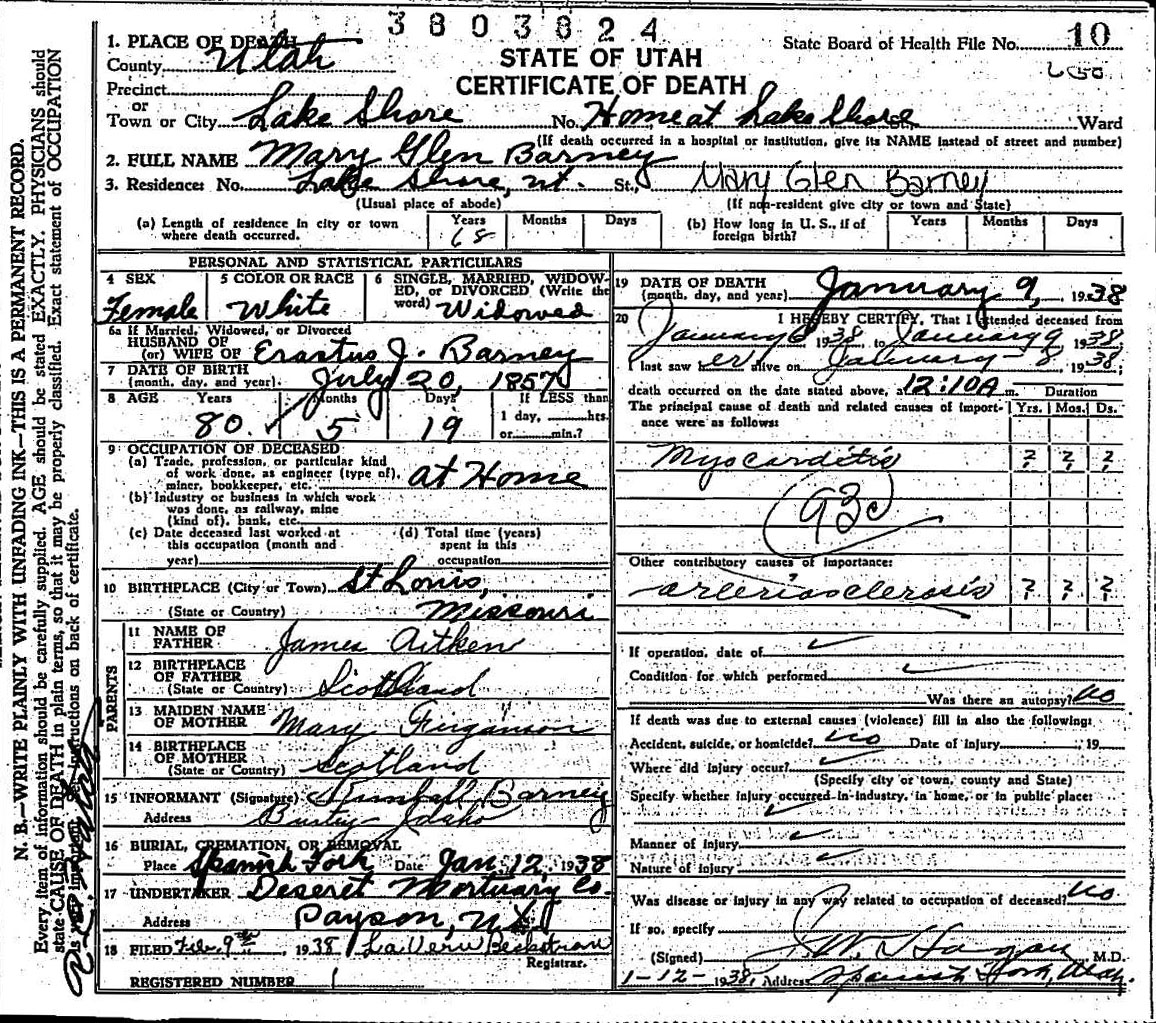 3803824
1. PLACE OF DEATH
State Board of Health File No. 10
County Utah
STATE OF UTAH
Precinct
CERTIFICATE OF DEATH
or
Town or City Lake Shore No. Home at Lake Shore St., Ward
(If death occurred in a hospital or institution, give its NAME instead of street and number)
2. FULL NAME Mary Glen Barney
3. Residence: No. Lake Shore, Ut. St., Mary Glen Barney
(Usual place of abode) (If non-resident give city or town and State)
(a) Length of residence in city or town where death occurred. Years 68 Months Days
(b) How long in U. S., if of foreign birth? Years Months Days
PERSONAL AND STATISTICAL PARTICULARS
4 SEX Female
5 COLOR OR RACE White
6 SINGLE, MARRIED, WIDOWED, or DIVORCED (Write the word) Widowed
6a If Married, Widowed, or Divorced
HUSBAND OF
(or) WIFE OF Erastus J. Barney
7 DATE OF BIRTH
(month, day, and year) July 20, 1857
8 AGE Years Months Days If LESS than
80 5 19 1 day, hrs.
or min.?
9 OCCUPATION OF DECEASED
(a) Trade, profession, or particular kind
of work done, as engineer (type of),
miner, bookkeeper, etc. at Home
(b) Industry or business in which work
was done, as railway, mine
(kind of), bank, etc.
(c) Date deceased last worked at
this occupation (month and
year)
(d) Total time (years)
spent in this
occupation
10 BIRTHPLACE (City or Town) St Louis,
(State or Country) Missouri
PARENTS
11 NAME OF
FATHER James Aitken
12 BIRTHPLACE
OF FATHER
(State or Country) Scotland
13 MAIDEN NAME
OF MOTHER Mary Firganson
14 BIRTHPLACE
OF MOTHER
(State or Country) Scotland
15 INFORMANT (Signature) Kimball Barney
Address Idaho
16 BURIAL, CREMATION, OR REMOVAL
Place Spanish Fork Date Jan. 12, 1938
17 UNDERTAKER Deseret Mortuary Co.
Address Payson, Ut
18 FILED Feb. 9th, 1938 LaVern Beckstrom
Registrar.
REGISTERED NUMBER 1
19 DATE OF DEATH
(month, day, and year) January 9, 1938
20 I HEREBY CERTIFY, That I attended deceased from
January 6 1938, to January 9 1938.
I last saw her alive on January 8 1938;
death occurred on the date stated above, at 12:10A m. Duration
The principal cause of death and related causes of importance were as follows: Yrs. Mos. Ds.
Myocarditis ? ? ?
93c
Other contributory causes of importance:
arteriosclerosis ? ? ?
If operation, date of
Condition for which performed
Was there an autopsy? no
If death was due to external causes (violence) fill in also the following:
Accident, suicide, or homicide? no Date of injury , 19
Where did injury occur?
(Specify city or town, county and State)
Specify whether injury occurred in industry, in home, or in public place:
Manner of injury
Nature of injury
Was disease or injury in any way related to occupation of deceased? no
If so, specify
(Signed) W. Hagan M.D.
1-12-1938, Address Spanish Fork, Utah.
N. B.—WRITE PLAINLY WITH UNFADING INK—THIS IS A PERMANENT RECORD.
Every item of information should be carefully supplied. AGE should be stated EXACTLY. PHYSICIANS should
state CAUSE OF DEATH in plain terms, so that it may be properly classified. Exact statement of OCCUPATION
is very important. See instructions on back of certificate.